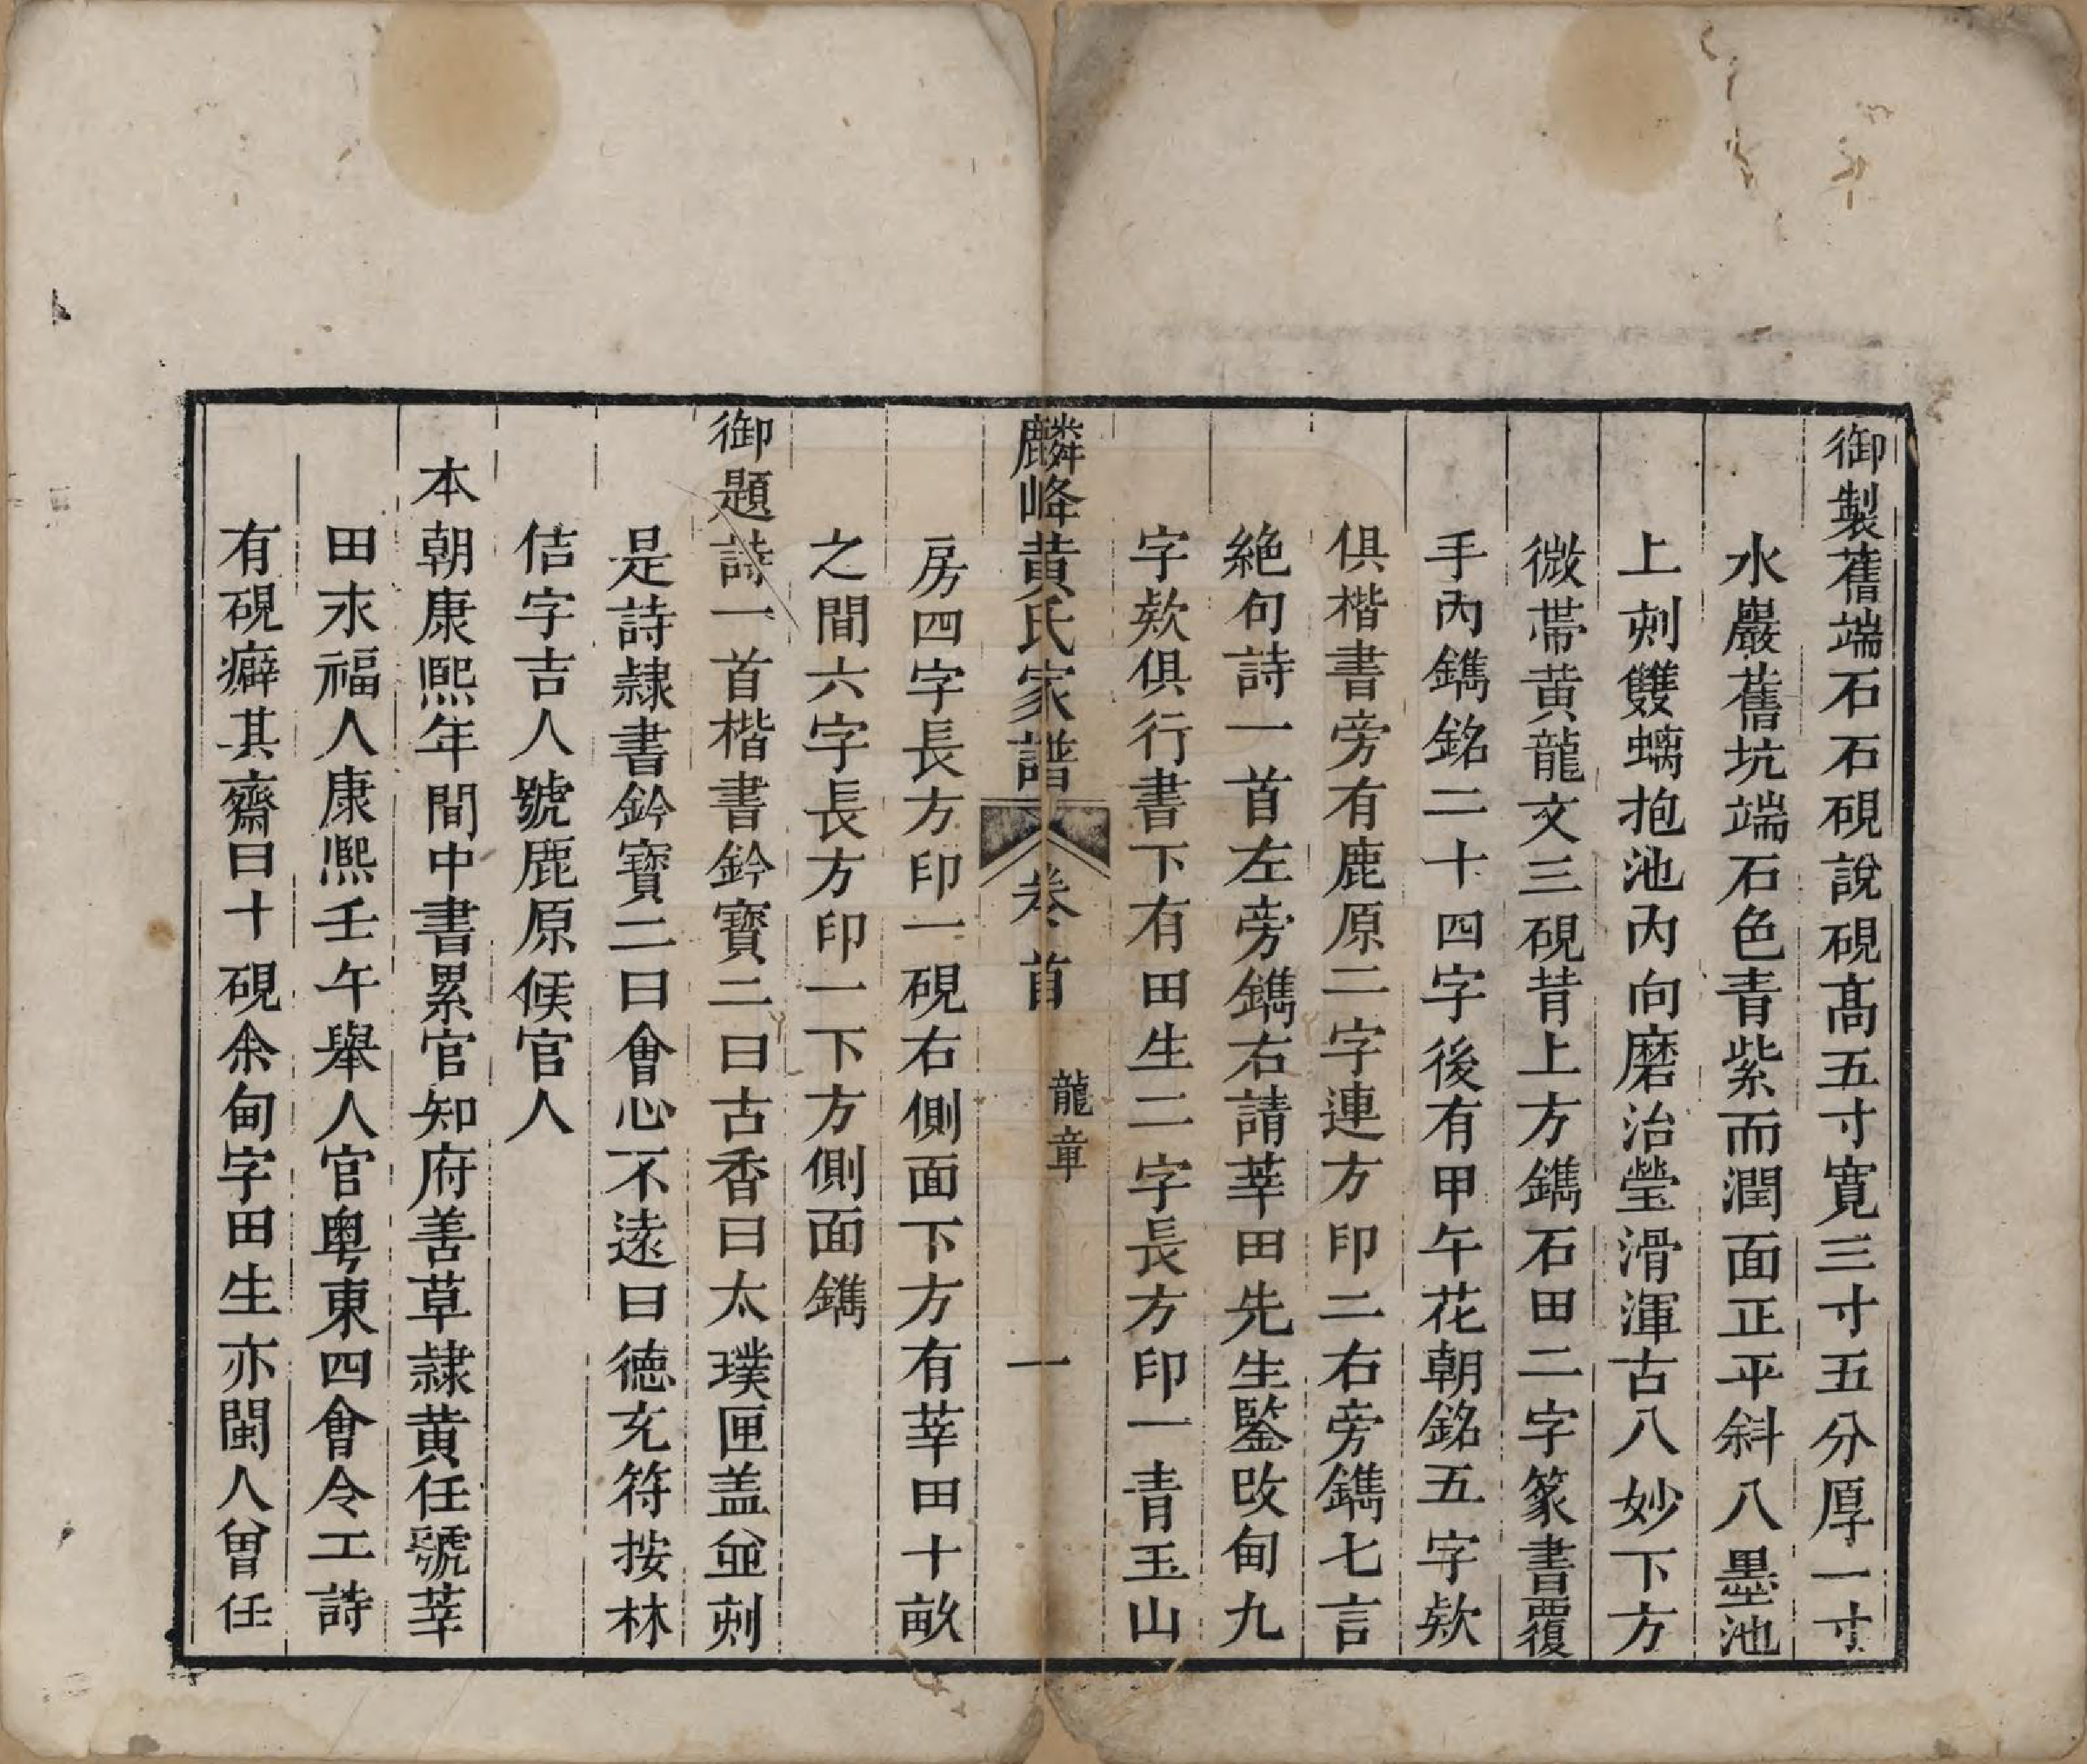 御製舊端石石硯說硯高五寸寬三寸五分厚一寸
水巖舊坑端石色青紫而潤面正平斜八墨池
上刺雙螭抱池內向磨治瑩滑渾古八妙下方
微帶黃龍文三硯昔上方鐫石田二字篆書覆
手內鐫銘二十四字後有甲午花朝銘五字欵
俱楷書旁有鹿原二字連方印二右旁鐫七言
絶句詩一首左旁鐫右請莘田先生鑒改甸九
字欵俱行書下有田生二字長方印一青玉山
麟峰黃氏家譜 卷首 龍章 一
房四字長方印一硯右側面下方有莘田十畝
之間六字長方印一下方側面鐫
御題詩一首楷書鈐寶二曰古香曰太璞匣盖並刺
是詩隸書鈐寶二曰會心不遠曰德充符按林
佶字吉人號鹿原候官人
本朝康熙年間中書累官知府善草隸黃任號莘
田永福人康熙壬午舉人官粵東四會令工詩
有硯癖其齋曰十硯余甸字田生亦閩人曾任